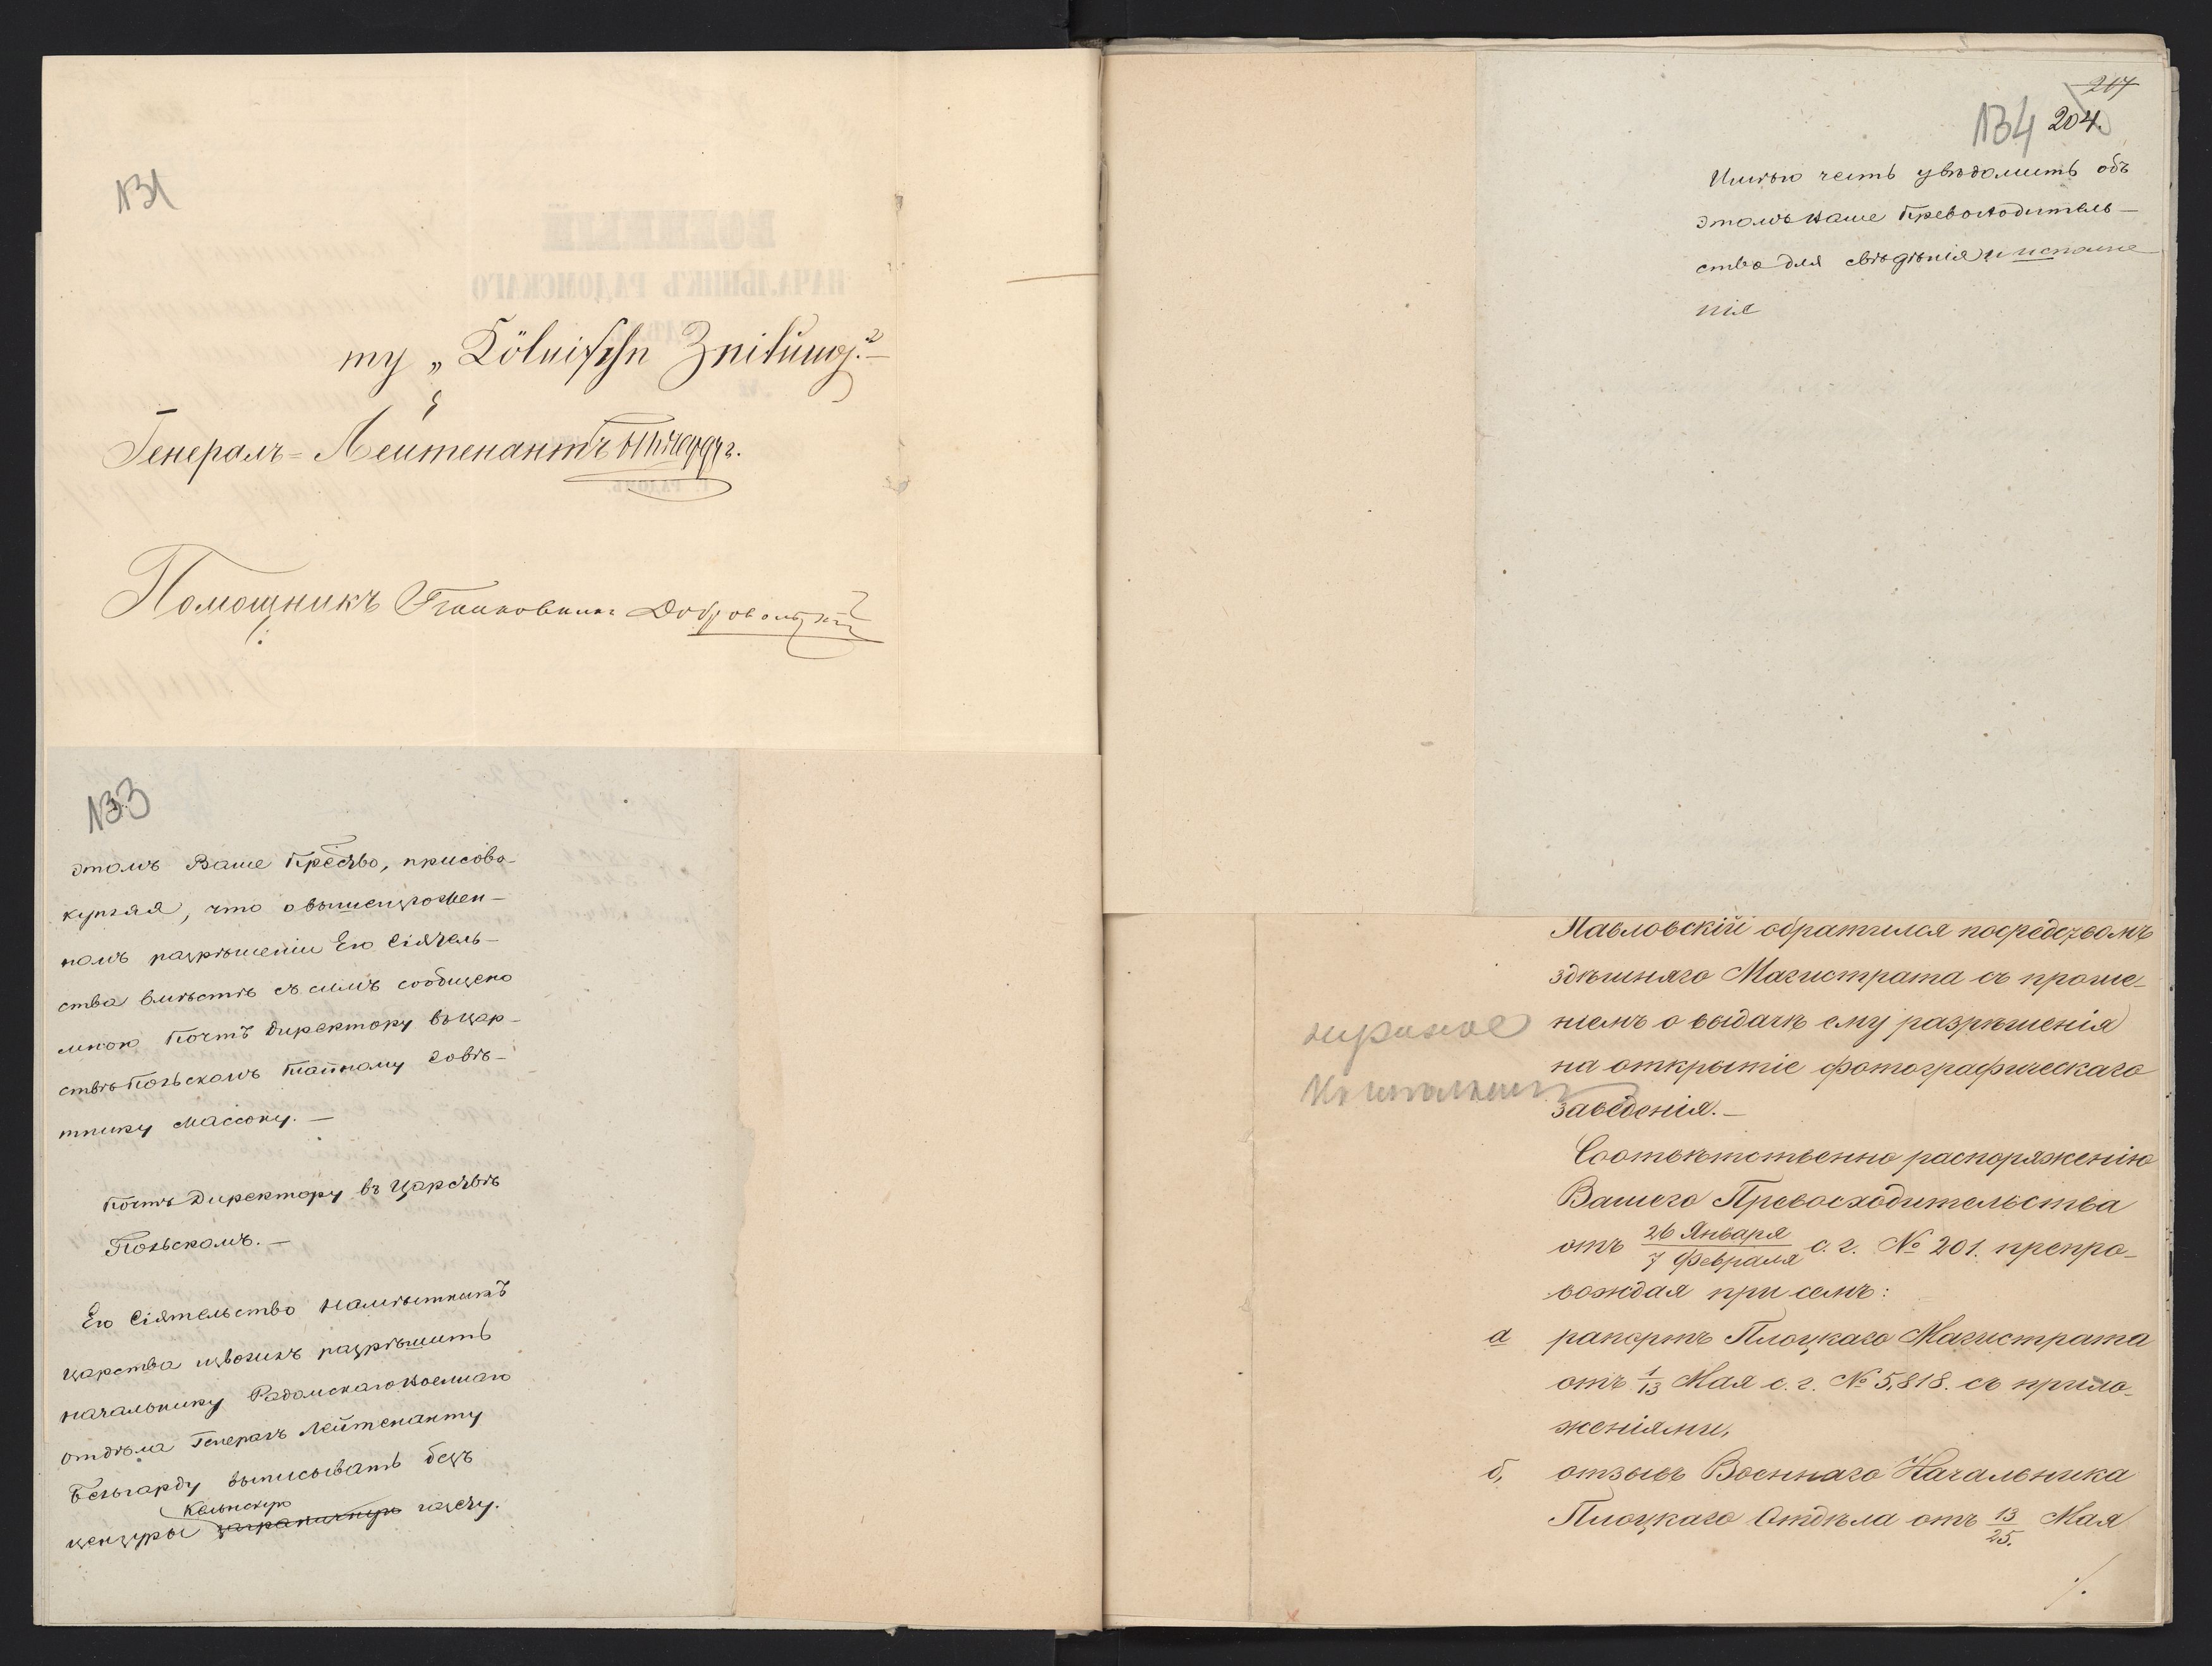 131
ту „Kölnische Zeitung."—
Генералъ-Лейтенантъ Бельгардъ.
Помощникъ Полковникъ Добровольскій
133
этомъ Ваше Прество, присово-
купляя, что о вышеизложен-
номъ разрѣшеніи Его Сіятель-
ства вмѣстѣ съ симъ сообщено
мною Почтъ Директору въ Цар-
ствѣ Польскомъ Тайному Совѣ-
тнику Массону. —
Почтъ Директору въ Царствѣ
Польскомъ. —
Его Сіятельство Намѣстникъ
Царства изволилъ разрѣшить
Начальнику Радомскаго Военнаго
отдѣла Генералъ Лейтенанту
Бельгарду выписывать безъ
Кельнскую
цензуры заграничную газету.
217
134 204.
Имѣю честь увѣдомить объ
этомъ Ваше Превосходитель-
ство для свѣдѣнія и исполне-
нія
Павловскій обратился посредствомъ
здѣшняго Магистрата съ проше-
ніемъ о выдачѣ ему разрѣшенія
на открытіе фотографическаго
заведенія. —
Соотвѣтственно распоряженію
Вашего Превосходительства
отъ 26 Января / 7 Февраля с. г. № 201. препро-
вождая при семъ:
а рапортъ Плоцкаго Магистрата
отъ 1/13 Мая с. г. № 5,818. съ прило-
женіями,
б, отзывъ Военнаго Начальника
Плоцкаго Отдѣла отъ 13/25. Мая
./.